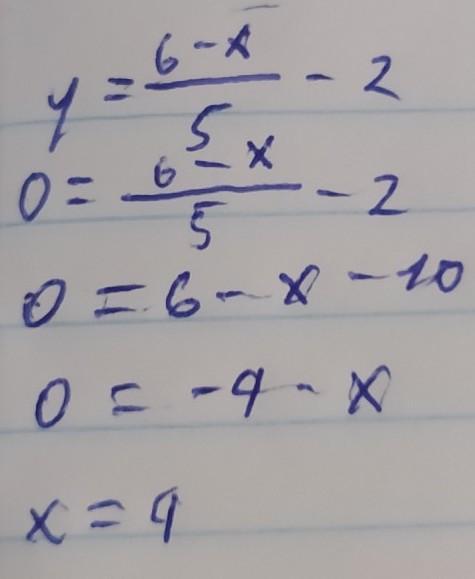 y = (6 - x)/5 - 2
0 = (6 - x)/5 - 2
0 = 6 - x - 10
0 = -4 - x
x = 4